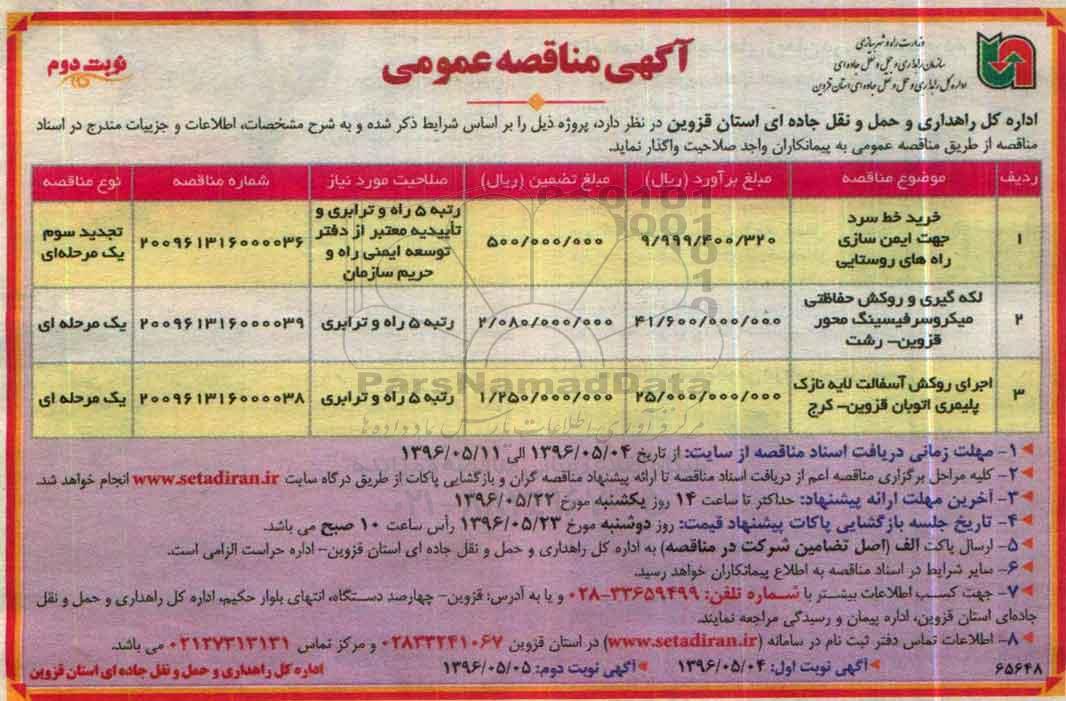 وزارت راه و شهرسازی
سازمان راهداری و حمل و نقل جاده ای
اداره کل راهداری و حمل و نقل جاده ای استان قزوین
آگهی مناقصه عمومی
نوبت دوم
اداره کل راهداری و حمل و نقل جاده ای استان قزوین در نظر دارد، پروژه ذیل را بر اساس شرایط ذکر شده و به شرح مشخصات، اطلاعات و جزییات مندرج در اسناد
مناقصه از طریق مناقصه عمومی به پیمانکاران واجد صلاحیت واگذار نماید.
ردیف موضوع مناقصه مبلغ برآورد (ریال) مبلغ تضمین (ریال) صلاحیت مورد نیاز شماره مناقصه نوع مناقصه
۱ خرید خط سرد جهت ایمن سازی راه های روستایی ۹/۹۹۹/۴۰۰/۳۲۰ ۵۰۰/۰۰۰/۰۰۰ رتبه ۵ راه و ترابری و تأییدیه معتبر از دفتر توسعه ایمنی راه و حریم سازمان ۲۰۰۹۶۱۳۱۶۰۰۰۰۳۶ تجدید سوم یک مرحله‌ای
۲ لکه گیری و روکش حفاظتی میکروسرفیسینگ محور قزوین- رشت ۴۱/۶۰۰/۰۰۰/۰۰۰ ۲/۰۸۰/۰۰۰/۰۰۰ رتبه ۵ راه و ترابری ۲۰۰۹۶۱۳۱۶۰۰۰۰۳۹ یک مرحله ای
۳ اجرای روکش آسفالت لایه نازک پلیمری اتوبان قزوین- کرج ۲۵/۰۰۰/۰۰۰/۰۰۰ ۱/۲۵۰/۰۰۰/۰۰۰ رتبه ۵ راه و ترابری ۲۰۰۹۶۱۳۱۶۰۰۰۰۳۸ یک مرحله ای
ParsNamadData
مرکز فرآوری اطلاعات پارس نماد داده ها
۱- مهلت زمانی دریافت اسناد مناقصه از سایت: از تاریخ ۱۳۹۶/۰۵/۰۴ الی ۱۳۹۶/۰۵/۱۱
۲- کلیه مراحل برگزاری مناقصه اعم از دریافت اسناد مناقصه تا ارائه پیشنهاد مناقصه گران و بازگشایی پاکات از طریق درگاه سایت www.setadiran.ir انجام خواهد شد.
۳- آخرین مهلت ارائه پیشنهاد: حداکثر تا ساعت ۱۴ روز یکشنبه مورخ ۱۳۹۶/۰۵/۲۲
۴- تاریخ جلسه بازگشایی پاکات پیشنهاد قیمت: روز دوشنبه مورخ ۱۳۹۶/۰۵/۲۳ رأس ساعت ۱۰ صبح می باشد.
۵- ارسال پاکت الف (اصل تضامین شرکت در مناقصه) به اداره کل راهداری و حمل و نقل جاده ای استان قزوین- اداره حراست الزامی است.
۶- سایر شرایط در اسناد مناقصه به اطلاع پیمانکاران خواهد رسید.
۷- جهت کسب اطلاعات بیشتر با شماره تلفن: ۳۳۶۵۹۴۹۹-۰۲۸ و یا به آدرس: قزوین- چهارصد دستگاه، انتهای بلوار حکیم، اداره کل راهداری و حمل و نقل
جاده‌ای استان قزوین، اداره پیمان و رسیدگی مراجعه نمایند.
۸- اطلاعات تماس دفتر ثبت نام در سامانه (www.setadiran.ir) در استان قزوین ۰۲۸۳۳۲۴۱۰۶۷ و مرکز تماس ۰۲۱۲۷۳۱۳۱۳۱ می باشد.
آگهی نوبت اول: ۱۳۹۶/۰۵/۰۴ آگهی نوبت دوم: ۱۳۹۶/۰۵/۰۵
۶۵۶۴۸ اداره کل راهداری و حمل و نقل جاده ای استان قزوین